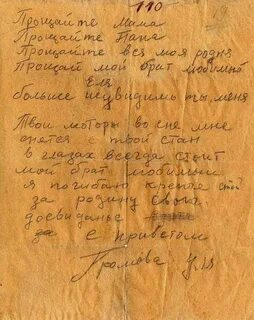 110
Прощайте Мама
Прощайте Папа
Прощайте вся моя родня
Прощай мой брат любимый
Еля
больше неувидишь ты меня
Твои моторы во сне мне
снятся твой стан
в глазах всегда стоит
мой брат любимый
я погибаю крепче стой
за родину свою.
досвиданье
с приветом
Громова Уля